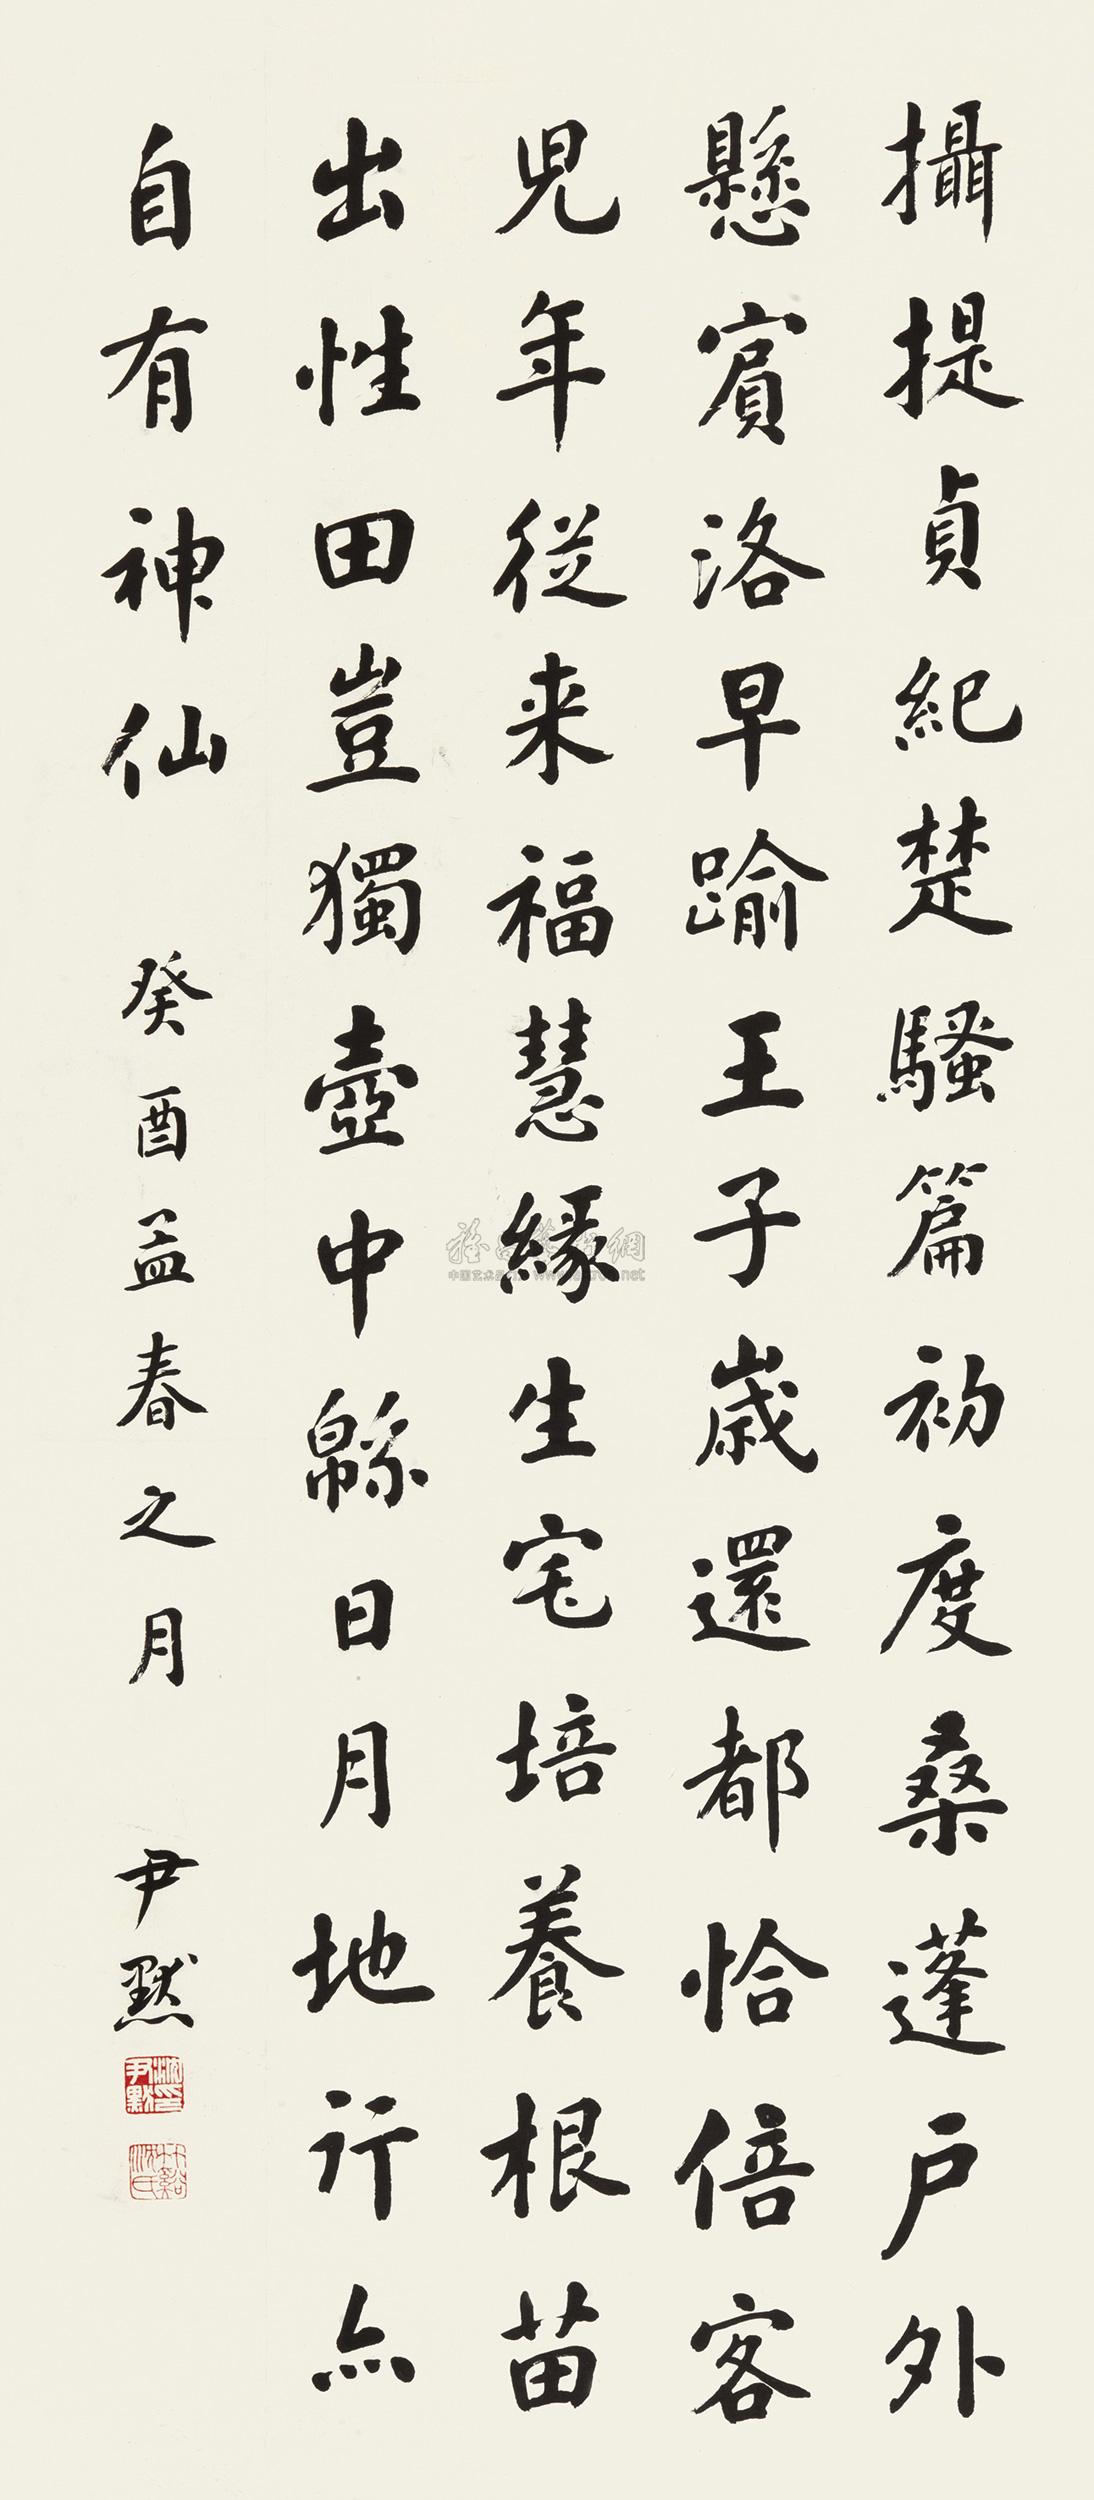 攝提貞紀楚騷篇初度桑蓬戶外
懸賓洛早踰王子歲還都恰倍客
兒年從来福慧緣生宅培養根苗
出性田豈獨壺中緜日月地行亦
自有神仙
癸酉孟春之月
尹默
沈尹默印
竹谿沈氏